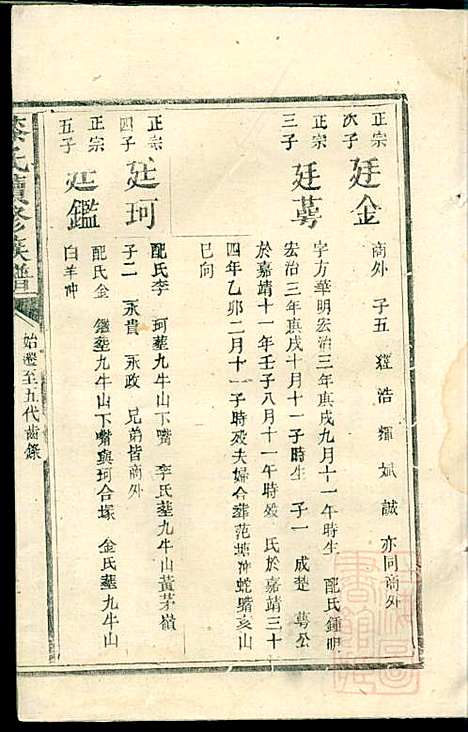 正宗
次子
廷金
商外 子五 經 浩 耀 斌 誠 亦同商外
正宗
三子
廷蕚
字方華明宏治三年庚戌九月十一午時生 配氏鍾明
宏治三年庚戌十月十一子時生 子一 成楚 蕚公
於嘉靖十一年壬子八月十一午時歿 氏於嘉靖三十
四年乙卯二月十一子時歿夫婦合葬范塘冲蛇騎亥山
巳向
正宗
四子
廷珂
配氏李 珂塟九牛山下嘴 李氏塟九牛山黃茅嶺
子二 永貴 永政 兄弟皆商外
正宗
五子
廷鑑
配氏金 鑑塟九牛山下嘴與珂合塚 金氏塟九牛山
白羊冲
氏續修族譜
始遷至五代齒錄